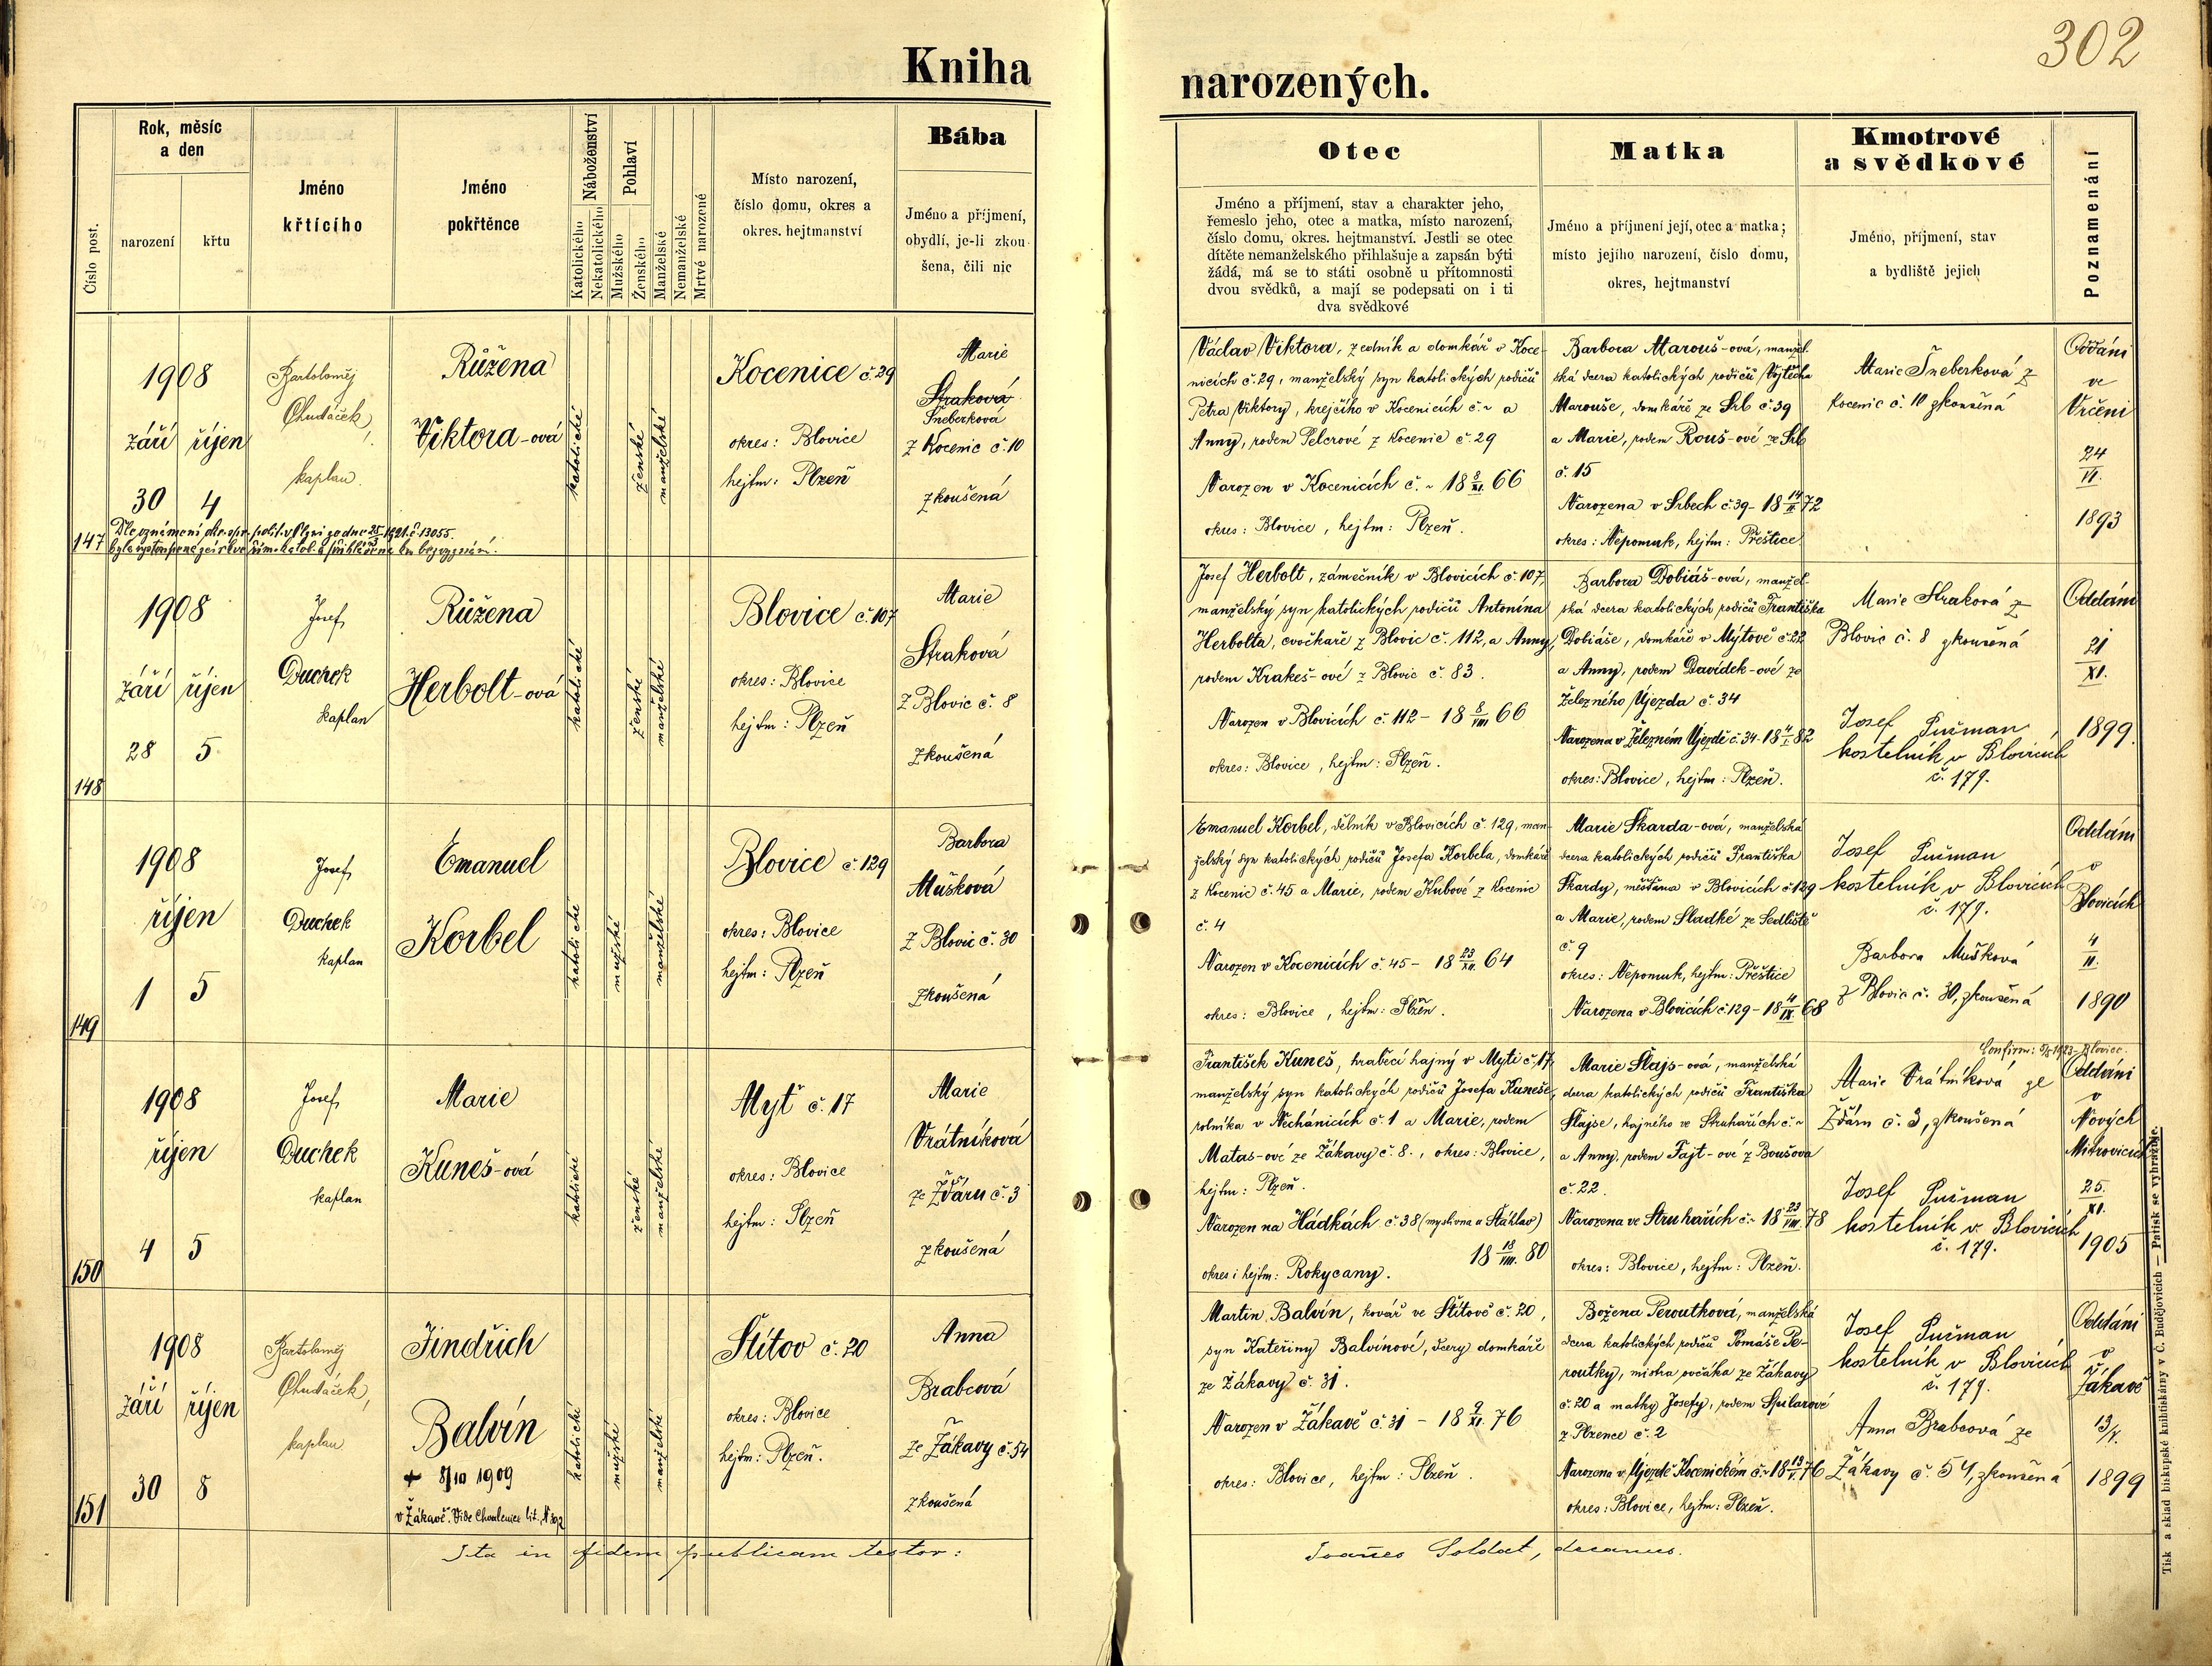 302
Kniha narozených.
Číslo post.
Rok, měsíc
a den
narození
křtu
Jméno
křtícího
Jméno
pokřtěnce
Náboženství
Katolického
Nekatolického
Pohlaví
Mužského
Ženského
Manželské
Nemanželské
Mrtvě narozené
Místo narození,
číslo domu, okres a
okres. hejtmanství
Bába
Jméno a příjmení,
obydlí, je-li zkou-
šena, čili nic
Otec
Jméno a příjmení, stav a charakter jeho,
řemeslo jeho, otec a matka, místo narození,
číslo domu, okres. hejtmanství. Jestli se otec
dítěte nemanželského přihlašuje a zapsán býti
žádá, má se to státi osobně u přítomnosti
dvou svědků, a mají se podepsati on i ti
dva svědkové
Matka
Jméno a příjmení její, otec a matka;
místo jejího narození, číslo domu,
okres, hejtmanství
Kmotrové
a svědkové
Jméno, příjmení, stav
a bydliště jejich
Poznamenání
147
1908
září říjen
30 4
Bartoloměj
Chudáček,
kaplan.
Růžena
Viktora-ová
katolické
ženské
manželské
Kocenice č. 29
okres: Blovice
hejtm: Plzeň
Marie
Straková
Šneberková
z Kocenic č. 10
zkoušená
Václav Viktora, zedník a domkář v Koce-
nicích č. 29, manželský syn katolických rodičů
Petra Viktory, krejčího v Kocenicích č. ~ a
Anny, rodem Pelcrové z Kocenic č. 29
Narozen v Kocenicích č. ~ 18 XI. 66
okres: Blovice, hejtm: Plzeň.
Barbora Marouš-ová, manžel-
ská dcera katolických rodičů Vojtěcha
Marouše, domkáře ze Srb č. 39
a Marie, rodem Rouš-ové ze Srb
č. 15
Narozena v Srbech č. 39 - 18 14/II 72
okres: Nepomuk, hejtm: Přeštice
Marie Šneberková z
Kocenic č. 10 zkoušená
Oddáni
ve
Vrčeni
24
VI.
1893
148
1908
září říjen
28 5
Josef
Duchek
kaplan
Růžena
Herbolt-ová
katolické
ženské
manželské
Blovice č. 107
okres: Blovice
hejtm: Plzeň
Marie
Straková
z Blovic č. 8
zkoušená
Josef Herbolt, zámečník v Blovicích č. 107,
manželský syn katolických rodičů Antonína
Herbolta, cvočkaře z Blovic č. 112, a Anny,
rodem Krakeš-ové z Blovic č. 83.
Narozen v Blovicích č. 112 - 18 8/VIII 66
okres: Blovice, hejtm: Plzeň.
Barbora Dobiáš-ová, manžel-
ská dcera katolických rodičů Františka
Dobiáše, domkáře v Mýtově č. 22
a Anny, rodem Davídek-ové ze
Železného Újezda č. 34
Narozena v Železném Újezdě č. 34 - 18 4/I 82
okres: Blovice, hejtm: Plzeň.
Marie Straková z
Blovic č. 8 zkoušená
Josef Sučman
kostelník v Blovicích
č. 179.
Oddáni
21
XI.
1899.
149
1908
říjen
1 5
Josef
Duchek
kaplan
Emanuel
Korbel
katolické
mužské
manželské
Blovice č. 129
okres: Blovice
hejtm: Plzeň
Barbora
Mušková
z Blovic č. 30
zkoušená
Emanuel Korbel, dělník v Blovicích č. 129, man-
želský syn katolických rodičů Josefa Korbela, domkáře
z Kocenic č. 45 a Marie, rodem Kubové z Kocenic
č. 4
Narozen v Kocenicích č. 45 - 18 23/XII. 64
okres: Blovice, hejtm: Plzeň.
Marie Škarda-ová, manželská
dcera katolických rodičů Františka
Škardy, měšťana v Blovicích č. 129
a Marie, rodem Sladké ze Sedliště
č. 9
okres: Nepomuk, hejtm: Přeštice
Narozena v Blovicích č. 129 - 18 4/IX. 68
Josef Sučman
kostelník v Blovicích
č. 179.
Barbora Mušková
z Blovic č. 30, zkoušená
Oddáni
v
Blovicích
4
II.
1890
150
1908
říjen
4 5
Josef
Duchek
kaplan
Marie
Kuneš-ová
katolické
ženské
manželské
Myť č. 17
okres: Blovice
hejtm: Plzeň
Marie
Vrátníková
ze Žďáru č. 3
zkoušená
František Kuneš, hraběcí hajný v Myti č. 17,
manželský syn katolických rodičů Josefa Kuneše,
rolníka v Nechánicích č. 1 a Marie, rodem
Matas-ové ze Žákavy č. 8., okres: Blovice,
hejtm: Plzeň.
Narozen na Hádkách č. 38 (myslivna u Šťáhlav)
18 18/VIII. 80
okres i hejtm: Rokycany.
Marie Šlajs-ová, manželská
dcera katolických rodičů Františka
Šlajse, hajného ve Struhařích č. ~
a Anny, rodem Fajt-ové z Boušova
č. 22.
Narozena ve Struhařích č. ~ 18 23/VIII. 78
okres: Blovice, hejtm: Plzeň.
Marie Vrátníková ze
Žďáru č. 3, zkoušená
Josef Sučman
kostelník v Blovicích
č. 179.
Oddáni
v
Nových
Mitrovicích
25.
XI.
1905
151
1908
září říjen
30 8
Bartoloměj
Chudáček,
kaplan
Jindřich
Balvín
+ 8/10 1909
v Žákavě. Vide Chvalenice lit.
katolické
mužské
manželské
Štítov č. 20
okres: Blovice
hejtm: Plzeň.
Anna
Brabcová
ze Žákavy č. 54
zkoušená
Martin Balvín, kovář ve Štítově č. 20,
syn Kateřiny Balvínové, dcery domkáře
ze Žákavy č. 31.
Narozen v Žákavě č. 31 - 18 9/XI. 76
okres: Blovice, hejtm: Plzeň.
Božena Peroutková, manželská
dcera katolických rodičů Tomáše Pe-
routky, mistra ovčáka ze Žákavy
č. 20 a matky Josefy, rodem Špilarové
z Plzence č. 2
Narozena v Újezdě Kocenickém č. ~ 18 13/V. 76
okres: Blovice, hejtm: Plzeň.
Josef Sučman
kostelník v Blovicích
č. 179.
Anna Brabcová ze
Žákavy č. 54, zkoušená
Oddáni
v
Žákavě
13/V.
1899
Ita in fidem publicam testor:
Joañes Soldat, decanus.
Tisk a sklad biskupské knihtiskárny v Č. Budějovicích — Patisk se vyhražuje.